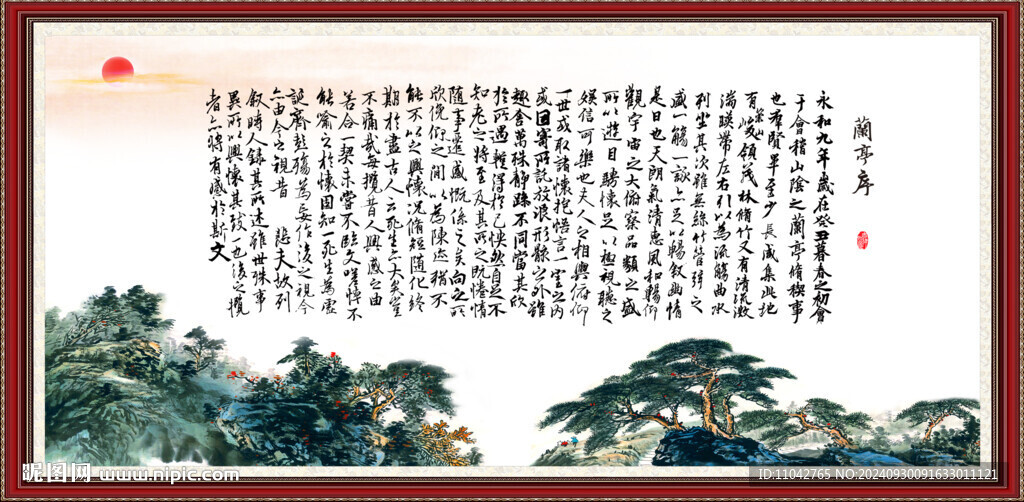 蘭亭序
永和九年歲在癸丑暮春之初會
于會稽山陰之蘭亭脩稧事
也群賢畢至少長咸集此地
有崇山峻領茂林脩竹又有清流激
湍暎帶左右引以為流觴曲水
列坐其次雖無絲竹管弦之
盛一觴一詠亦足以暢敘幽情
是日也天朗氣清惠風和暢仰
觀宇宙之大俯察品類之盛
所以遊目騁懷足以極視聽之
娛信可樂也夫人之相與俯仰
一世或取諸懷抱悟言一室之內
或因寄所託放浪形骸之外雖
趣舍萬殊靜躁不同當其欣
於所遇暫得於己快然自足不
知老之將至及其所之既惓情
隨事遷感慨係之矣向之所
欣俛仰之間以為陳迹猶不
能不以之興懷況脩短隨化終
期於盡古人云死生亦大矣豈
不痛哉每攬昔人興感之由
若合一契未嘗不臨文嗟悼不
能喻之於懷固知一死生為虛
誕齊彭殤為妄作後之視今
亦由今之視昔 悲夫故列
敘時人錄其所述雖世殊事
異所以興懷其致一也後之攬
者亦將有感於斯文
昵图网 www.nipic.com
ID:11042765 NO:20240930091633011121